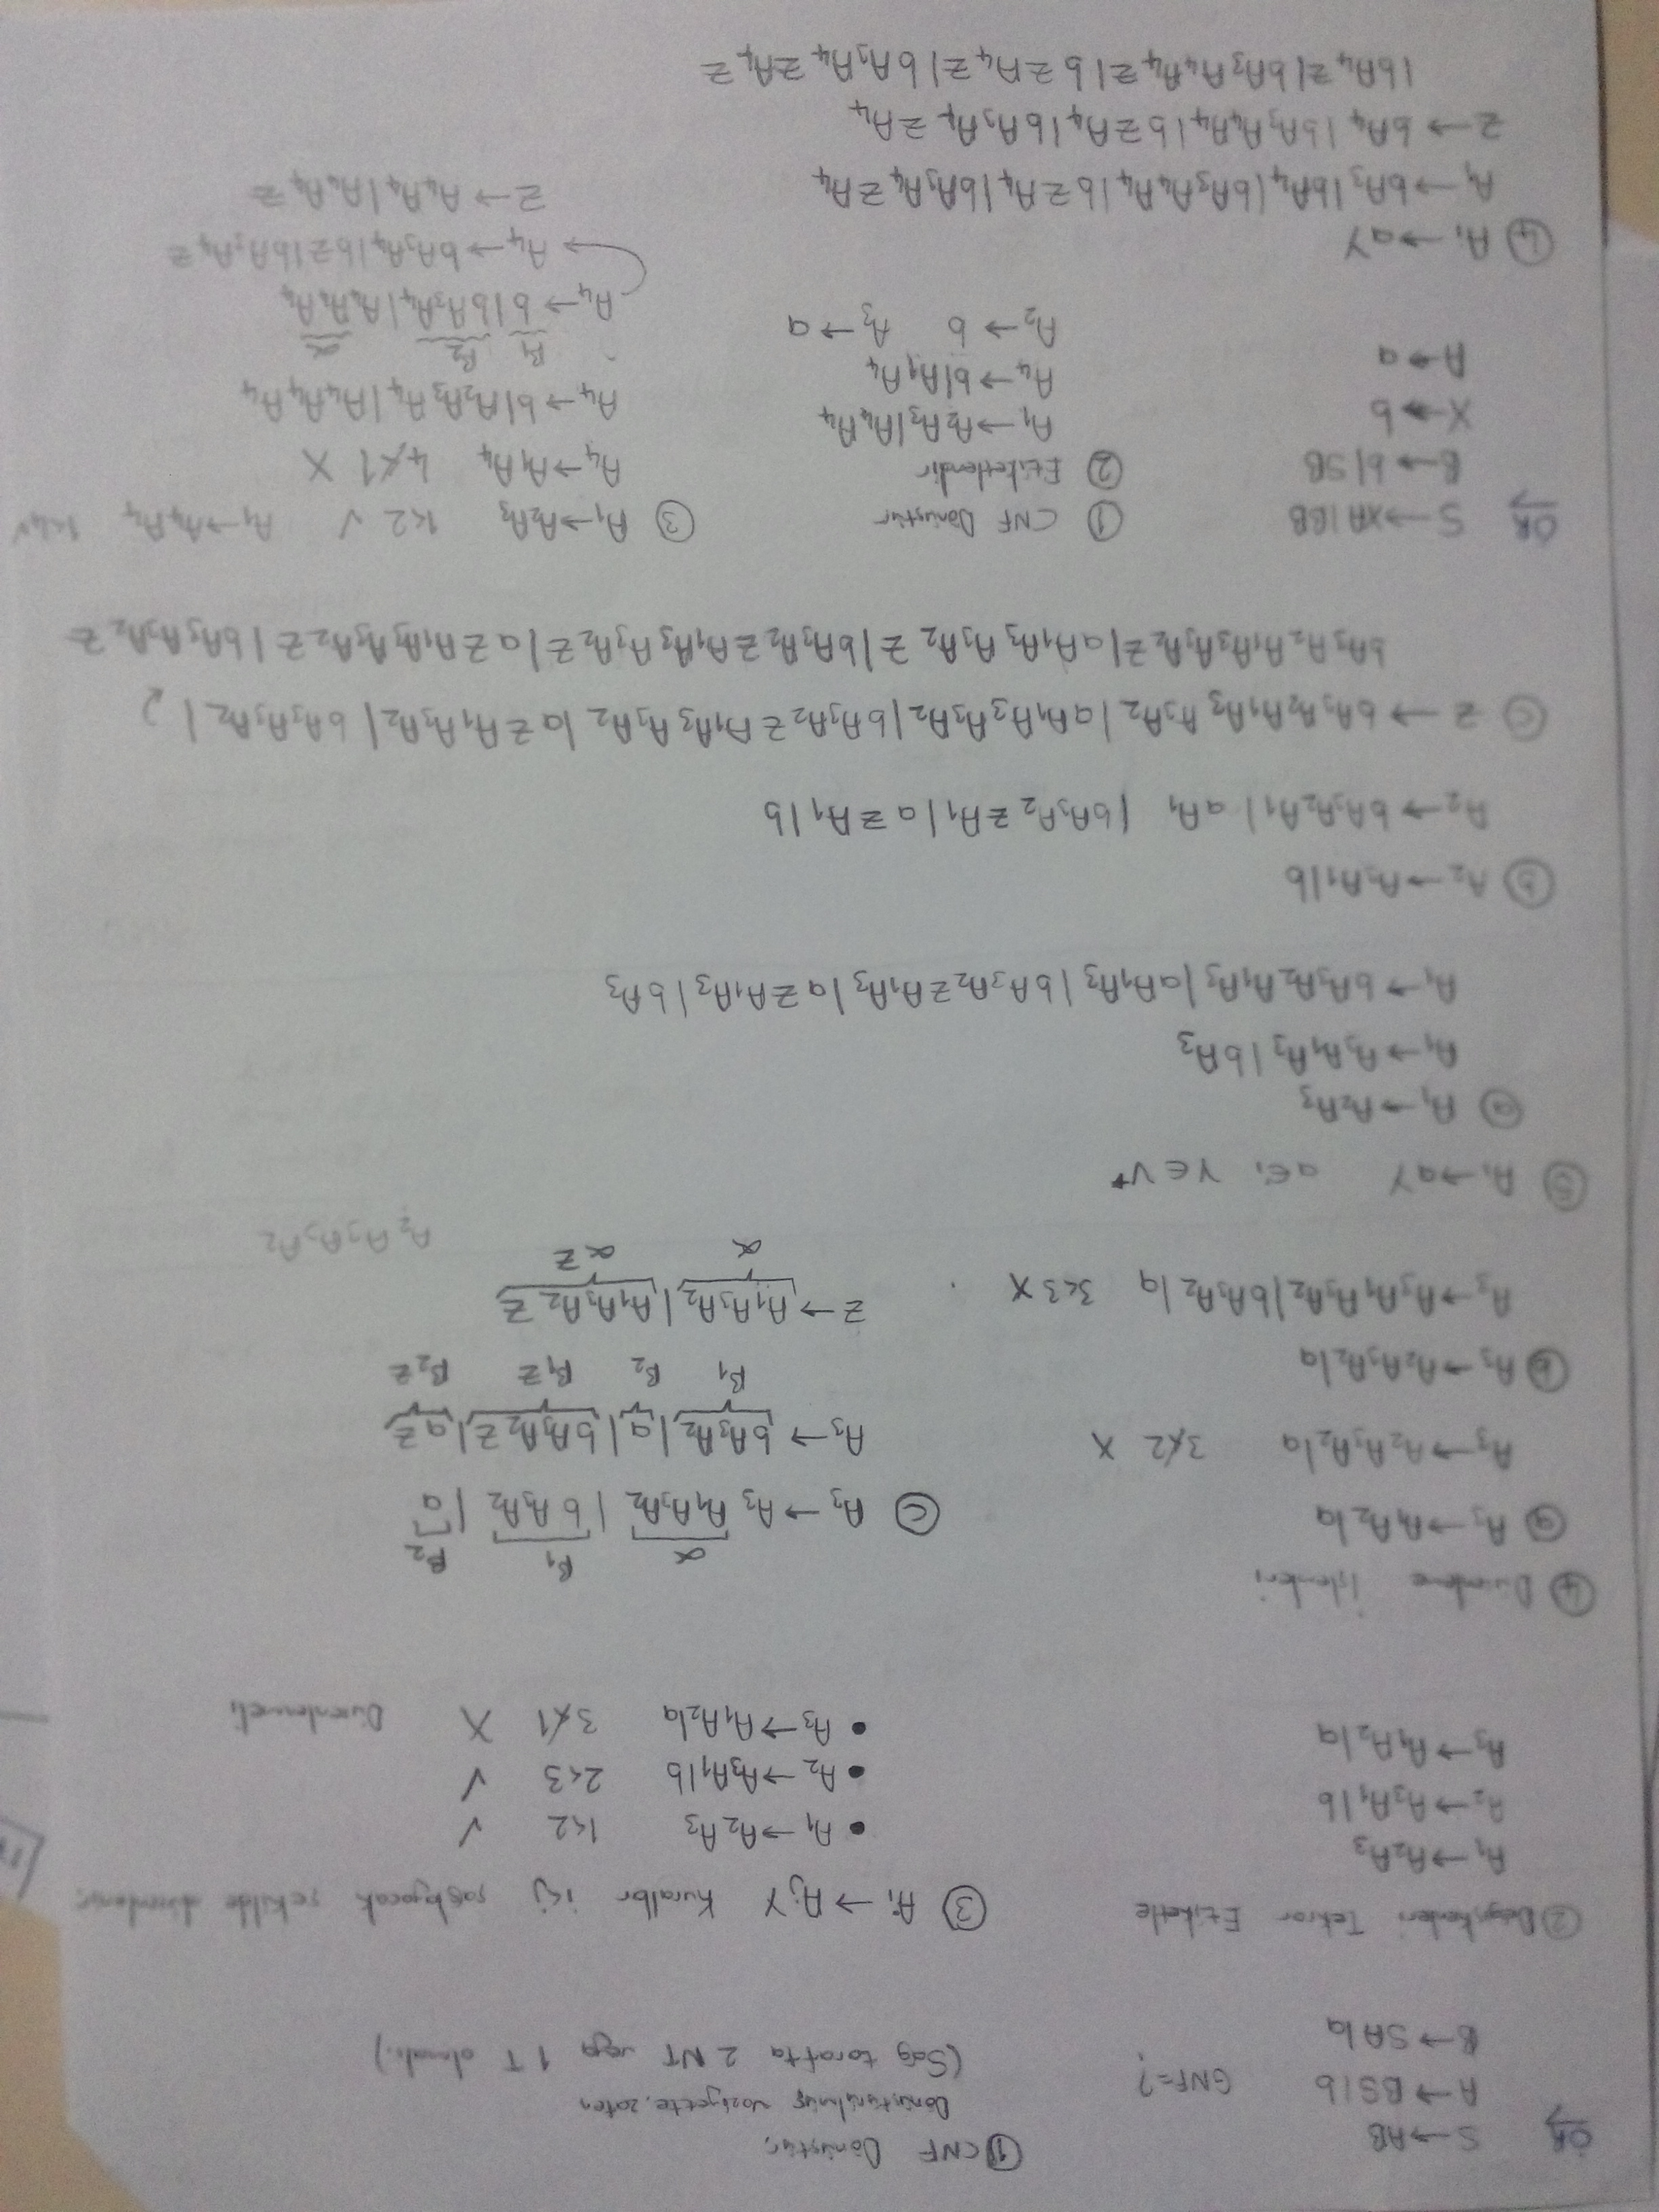 ÖR S→AB
A→BS|b GNF=?
B→SA|a
① CNF Dönüştür,
Dönüştürülmüş vaziyette, zaten
(Sağ tarafta 2 NT veya 1 T olmalı.)
② Değişkenleri Tekrar Etiketle
A₁→A₂A₃
A₂→A₃A₁|b
A₃→A₁A₂|a
③ Aᵢ→AⱼY Kurallar i<j sağlayacak şekilde düzenlenir.
• A₁→A₂A₃ 1<2 ✓
• A₂→A₃A₁|b 2<3 ✓
• A₃→A₁A₂|a 3≮1 X Düzenlenmeli
④ Düzenleme İşlemleri
ⓐ A₃→A₁A₂|a
A₃→A₂A₃A₂|a 3≮2 X
ⓑ A₃→A₂A₃A₂|a
A₃→A₃A₁A₃A₂|bA₃A₂|a 3<3 X
α β₁ β₂
ⓒ A₃→A₃A₁A₃A₂|bA₃A₂|a
A₃→bA₃A₂|a|bA₃A₂Z|aZ
β₁ β₂ β₁Z β₂Z
Z→A₁A₃A₂|A₁A₃A₂Z
α αZ
A₂A₃A₃A₂
⑤ Aᵢ→aY Y∈V*
ⓐ A₁→A₂A₃
A₁→A₃A₁A₃|bA₃
A₁→bA₃A₂A₁A₃|aA₁A₃|bA₃A₂ZA₁A₃|aZA₁A₃|bA₃
ⓑ A₂→A₃A₁|b
A₂→bA₃A₂A₁|aA₁|bA₃A₂ZA₁|aZA₁|b
ⓒ Z→bA₃A₂A₁A₃A₃A₂|aA₁A₃A₃A₂|bA₃A₂ZA₁A₃A₃A₂|aZA₁A₃A₂|bA₃A₃A₂|
bA₃A₂A₁A₃A₃A₂Z|aA₁A₃A₃A₂Z|bA₃A₂ZA₁A₃A₃A₂Z|aZA₁A₃A₃A₂Z|bA₃A₃A₂Z
ÖR S→XA|BB
B→b|SB
X→b
A→a
① CNF Dönüştür
② Etiketlendir
A₁→A₂A₃|A₄A₄
A₄→b|A₁A₄
A₂→b A₃→a
③ A₁→A₂A₃ 1<2 ✓ A₁→A₄A₄ 1<4 ✓
A₄→A₁A₄ 4≮1 X
A₄→b|A₂A₃A₄|A₄A₄A₄
β₁ β₂ α
A₄→b|bA₃A₄|A₄A₄A₄
A₄→bA₃A₄|bZ|bA₃A₄Z
Z→A₄A₄|A₄A₄Z
④ Aᵢ→aY
A₁→bA₃|bA₄|bA₃A₄A₄|bZA₄|bA₃A₄ZA₄
Z→bA₄|bA₃A₄A₄|bZA₄|bA₃A₄ZA₄
|bA₄Z|bA₃A₄A₄Z|bZA₄Z|bA₃A₄ZA₄Z